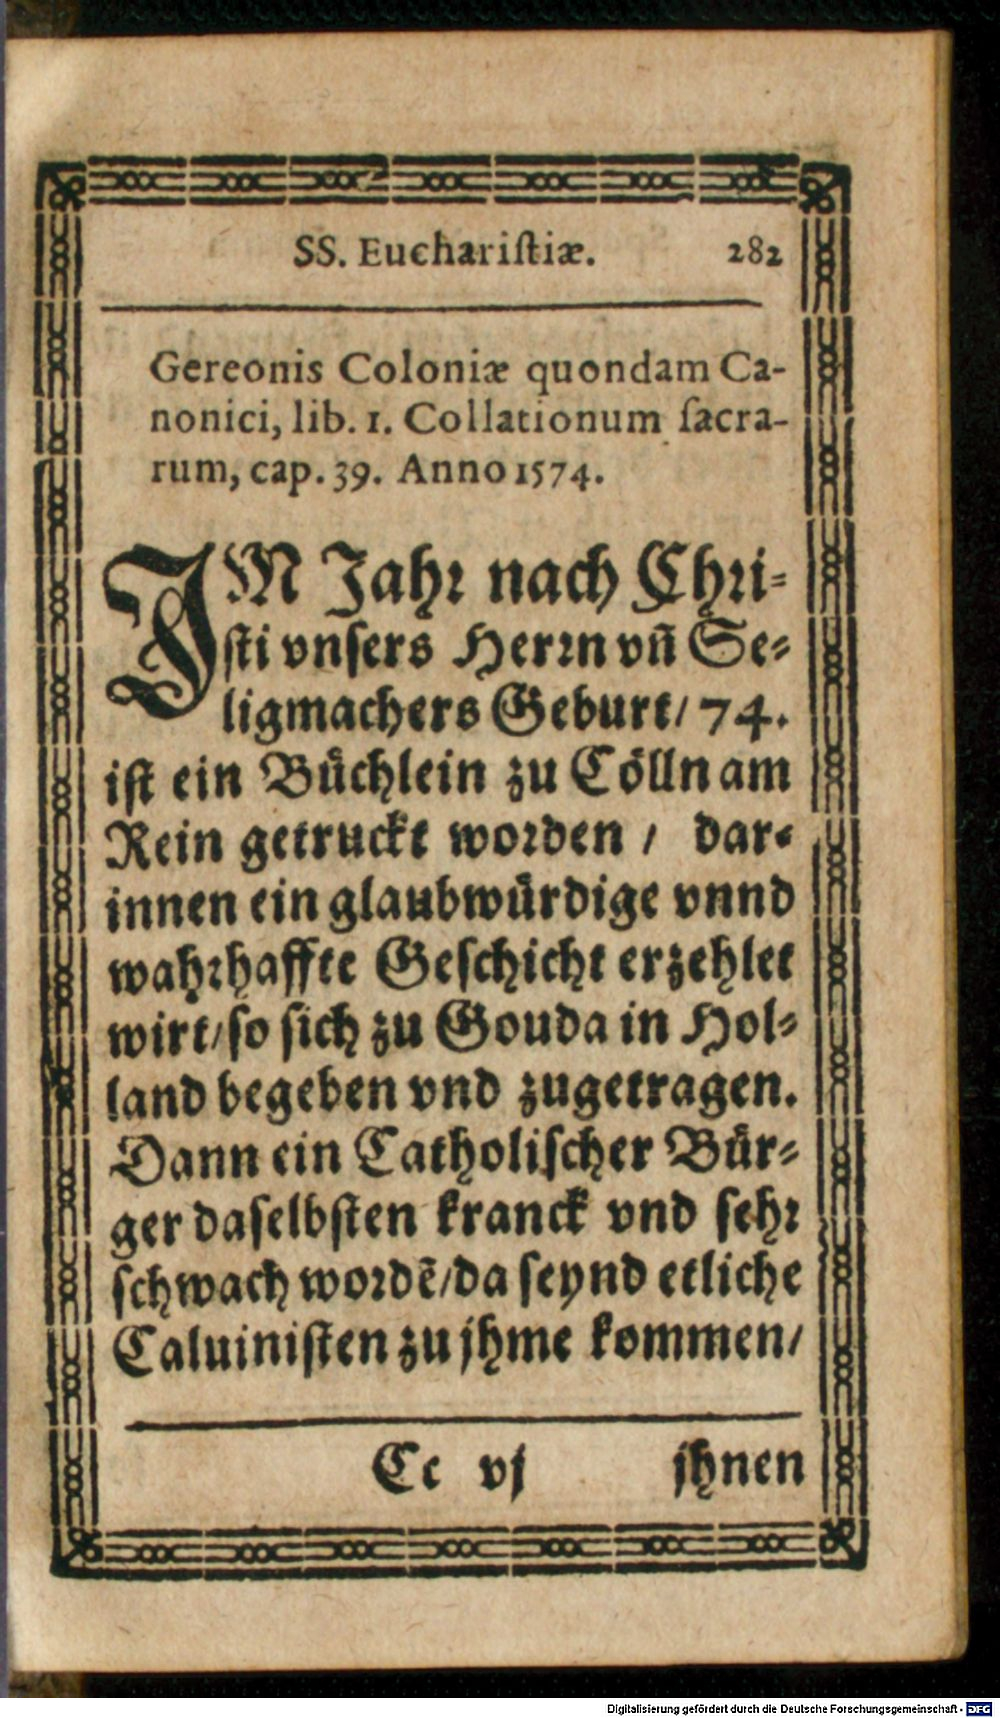 SS. Euchariſtiæ. 282
Gereonis Coloniæ quondam Ca-
nonici, lib. 1. Collationum ſacra-
rum, cap. 39. Anno 1574.
IM Jahꝛ nach Chꝛi-
ſti vnſers Herꝛn vñ Se-
ligmachers Geburt/ 74.
iſt ein Bůchlein zu Cölln am
Rein getruckt woꝛden / dar-
innen ein glaubwůrdige vnnd
wahꝛhaffte Geſchicht erzehlet
wirt/ ſo ſich zu Gouda in Hol-
land begeben vnd zugetragen.
Dann ein Catholiſcher Bůr-
ger daſelbſten kranck vnd ſehꝛ
ſchwach woꝛdē/ da ſeynd etliche
Caluiniſten zu jhme kommen/
Cc vj jhnen
Digitalisierung gefördert durch die Deutsche Forschungsgemeinschaft - DFG